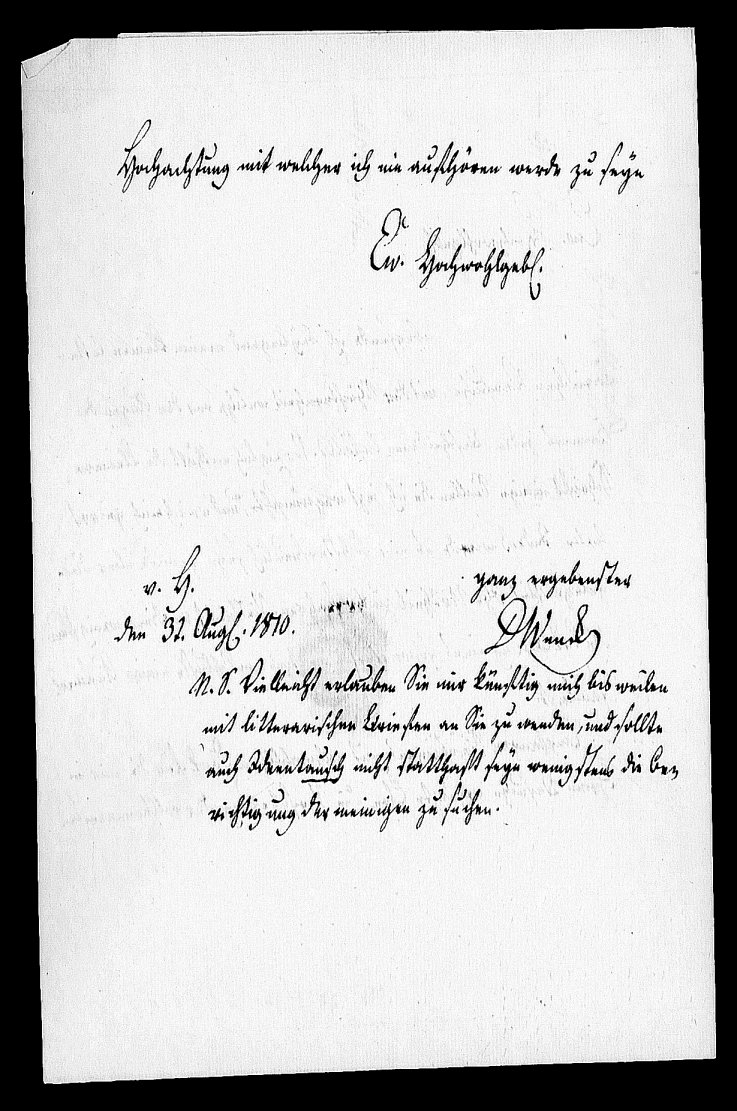 Hochachtung mit welcher ich nie aufhören werde zu seyn
Ew. Hochwohlgeb.
v. H. ganz ergebenster
den 31. Aug. 1810. DWenck
N. S. Vielleicht erlauben Sie mir künftig mich bisweilen
mit litterarischen Briefen an Sie zu wenden, und sollte
auch Ideentausch nicht statthaft seyn wenigstens die Be-
richtigung der meinigen zu suchen.